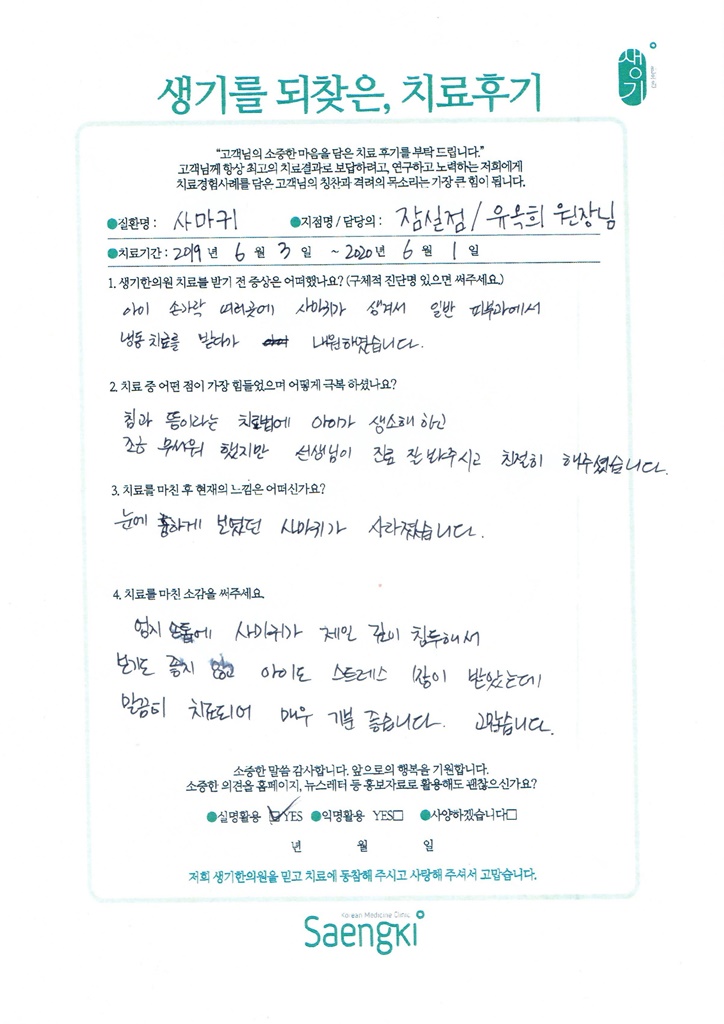 생기
생기를 되찾은, 치료후기
"고객님의 소중한 마음을 담은 치료 후기를 부탁 드립니다."
고객님께 항상 최고의 치료결과로 보답하려고, 연구하고 노력하는 저희에게
치료경험사례를 담은 고객님의 칭찬과 격려의 목소리는 가장 큰 힘이 됩니다.
●질환명 : 사마귀 ●지점명 / 담당의 : 잠실점 / 유옥희 원장님
●치료기간 : 2019 년 6 월 3 일 ~ 2020 년 6 월 1 일
1. 생기한의원 치료를 받기 전 증상은 어떠했나요? (구체적 진단명 있으면 써주세요.)
아이 손가락 여러곳에 사마귀가 생겨서 일반 피부과에서
냉동치료를 받다가 내원하였습니다.
2. 치료 중 어떤 점이 가장 힘들었으며 어떻게 극복 하셨나요?
침과 뜸이라는 치료법에 아이가 생소해 하고
조금 무서워 했지만 선생님이 진료 잘 봐주시고 친절히 해주셨습니다.
3. 치료를 마친 후 현재의 느낌은 어떠신가요?
눈에 흉하게 보였던 사마귀가 사라졌습니다.
4. 치료를 마친 소감을 써주세요.
엄지 손톱에 사마귀가 제일 깊이 침투해서
보기도 좋지 않고 아이도 스트레스 많이 받았는데
말끔히 치료되어 매우 기분 좋습니다. 고맙습니다.
소중한 말씀 감사합니다. 앞으로의 행복을 기원합니다.
소중한 의견을 홈페이지, 뉴스레터 등 홍보자료로 활용해도 괜찮으신가요?
●실명활용 ☑YES ●익명활용 YES□ ●사양하겠습니다□
년 월 일
저희 생기한의원을 믿고 치료에 동참해 주시고 사랑해 주셔서 고맙습니다.
Korean Medicine Clinic
Saengki